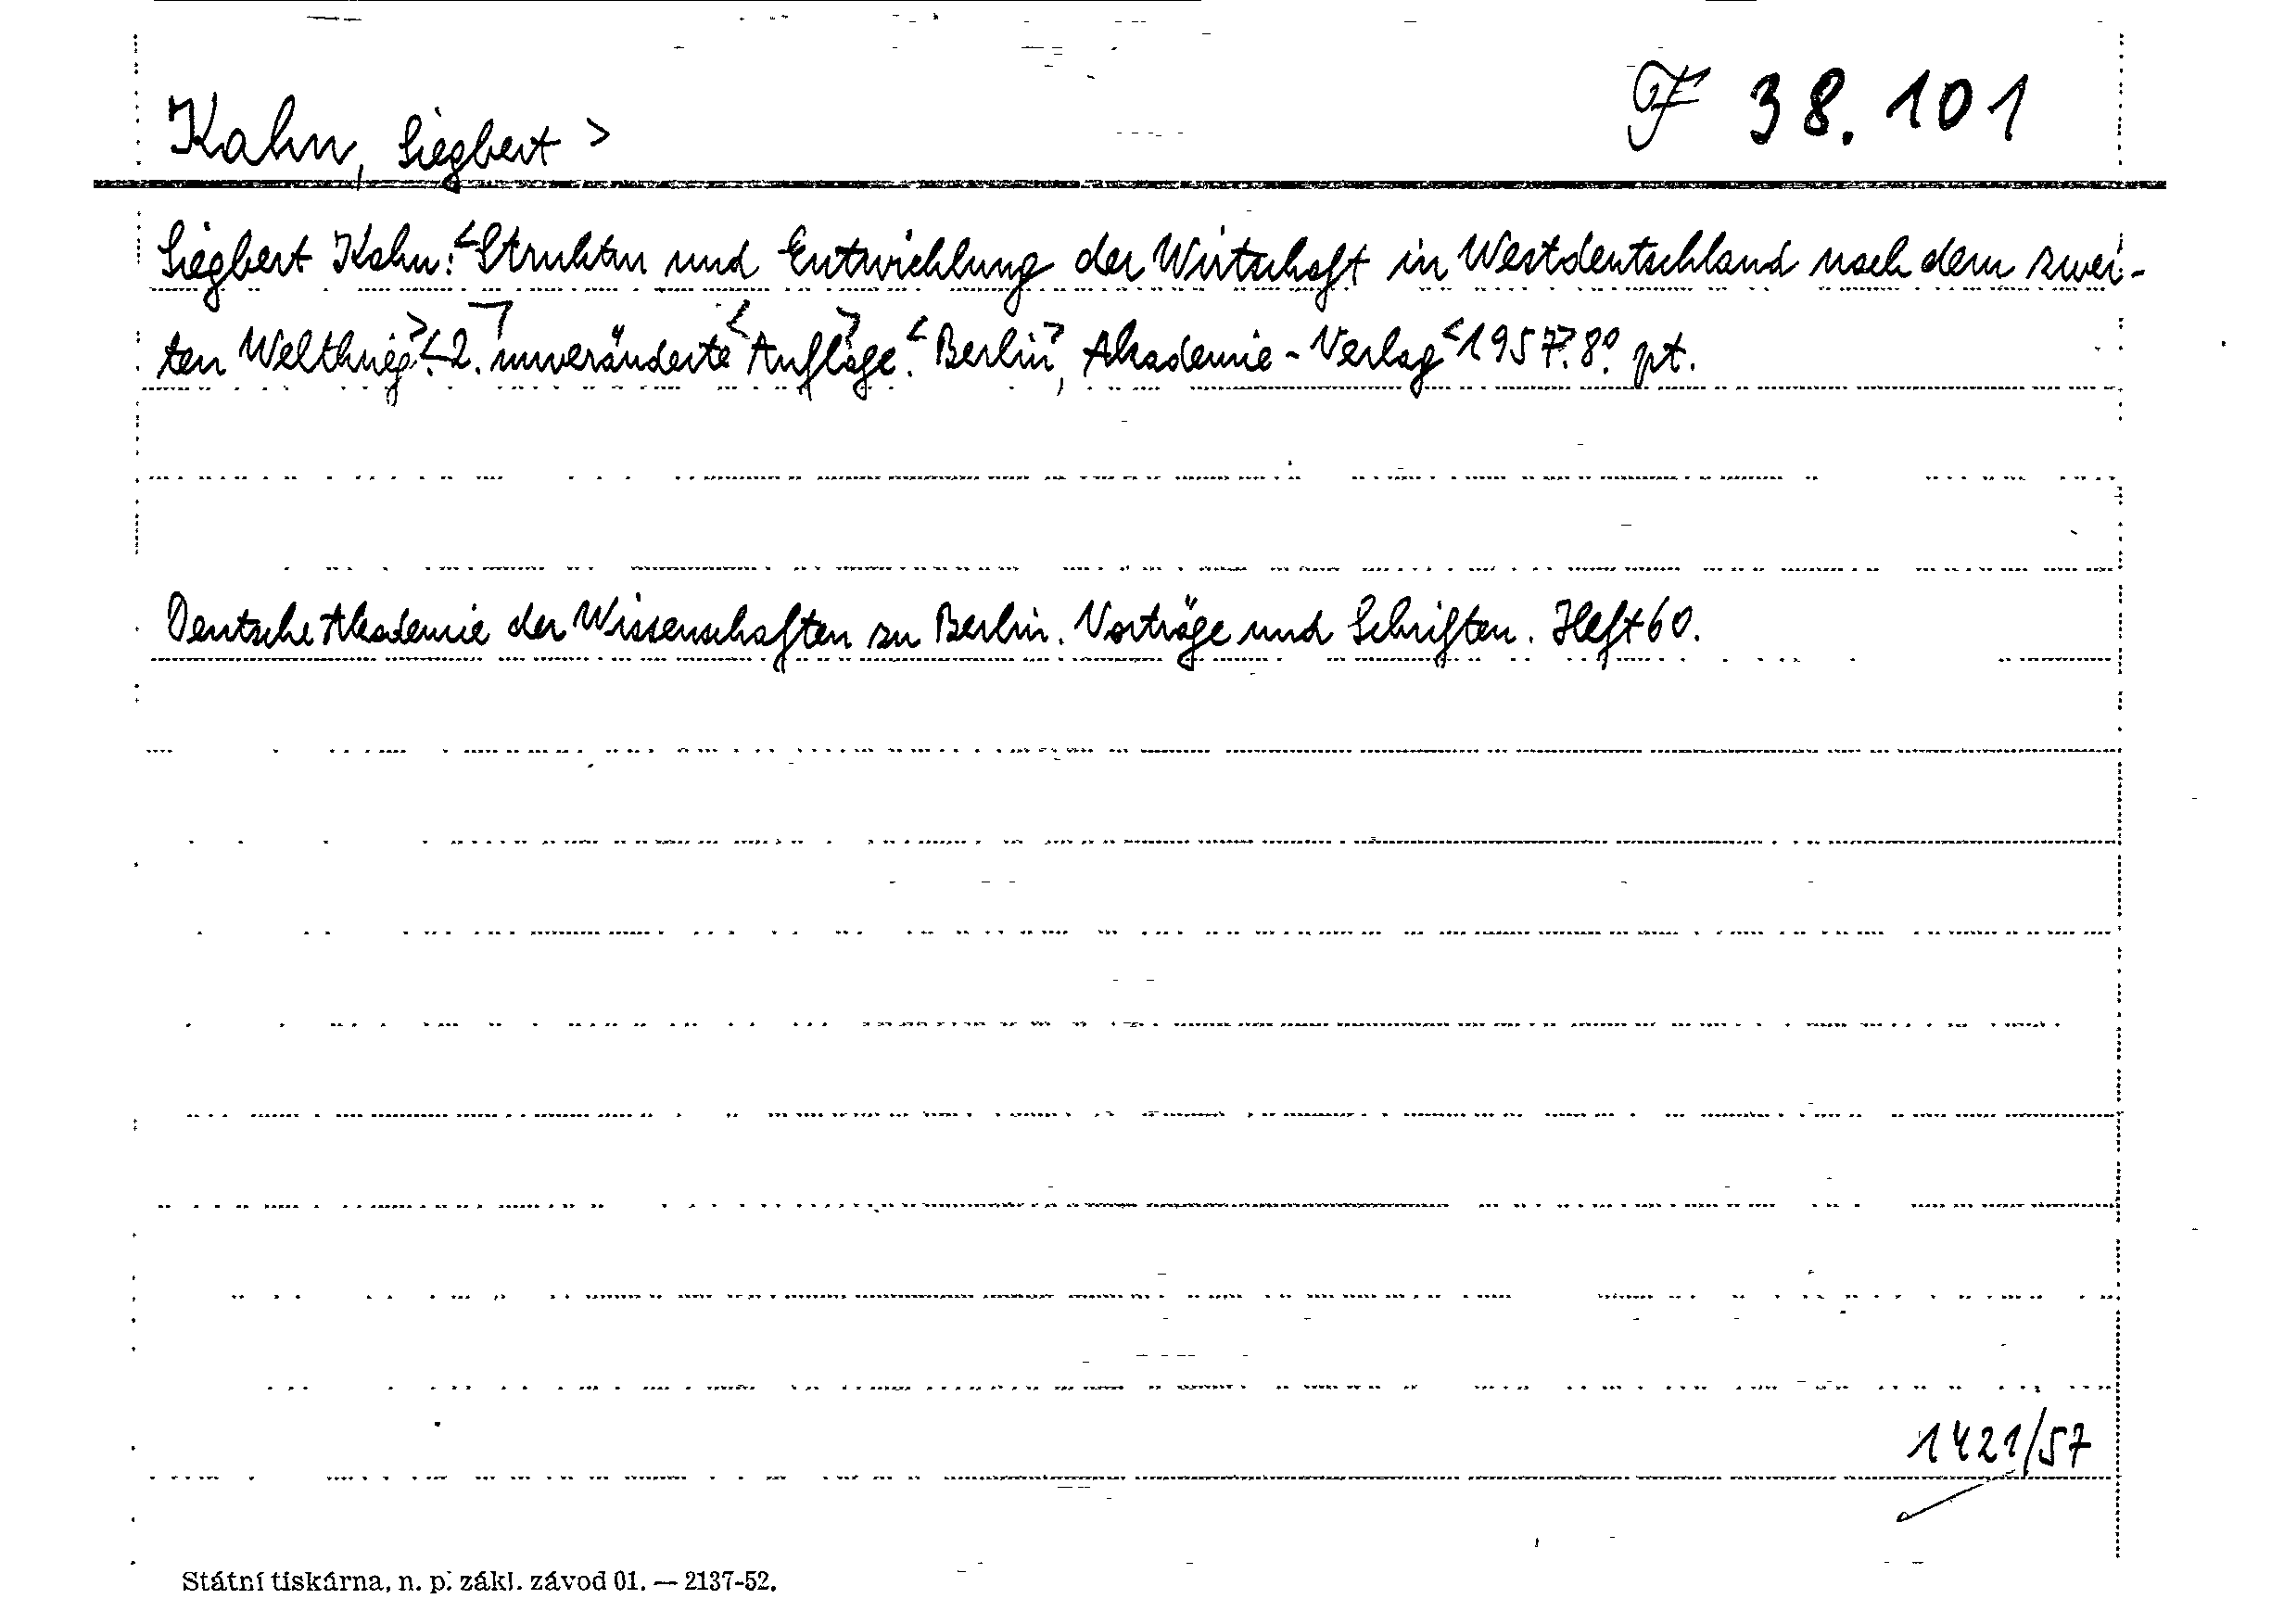 Kahn, Siegbert >
F 38.101
Siegbert Kahn: <Struktur und Entwicklung der Wirtschaft in Westdeutschland nach dem zwei-
ten Weltkrieg>. <2. unveränderte <Auflage>. <Berlin>, Akademie-Verlag <1957>. 8° pt.
Deutsche Akademie der Wissenschaften zu Berlin. Vorträge und Schriften. Heft 60.
1421/57
Státní tiskárna, n. p. zákl. závod 01. — 2137-52.